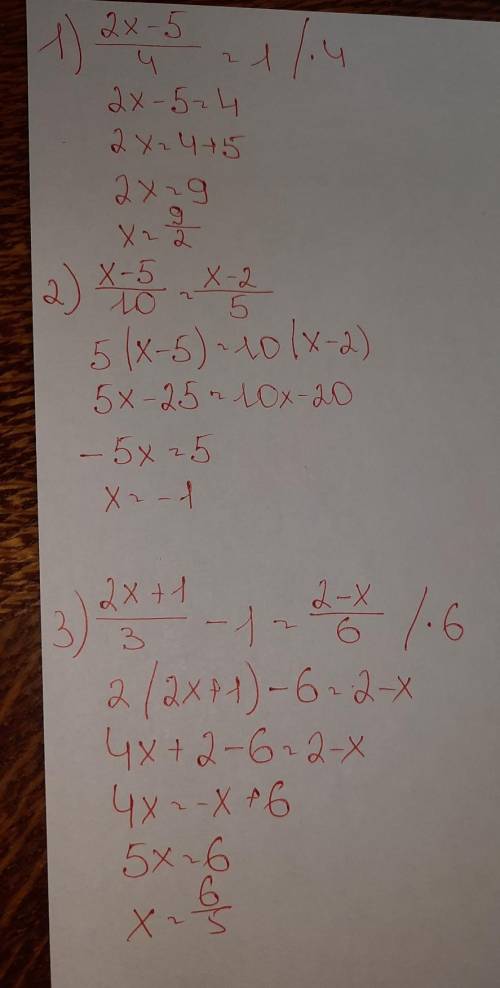 1) (2x-5)/4 = 1 /·4
2x-5=4
2x=4+5
2x=9
x=9/2
2) (x-5)/10 = (x-2)/5
5(x-5)=10(x-2)
5x-25=10x-20
-5x=5
x=-1
3) (2x+1)/3 - 1 = (2-x)/6 /·6
2(2x+1)-6=2-x
4x+2-6=2-x
4x=-x+6
5x=6
x=6/5